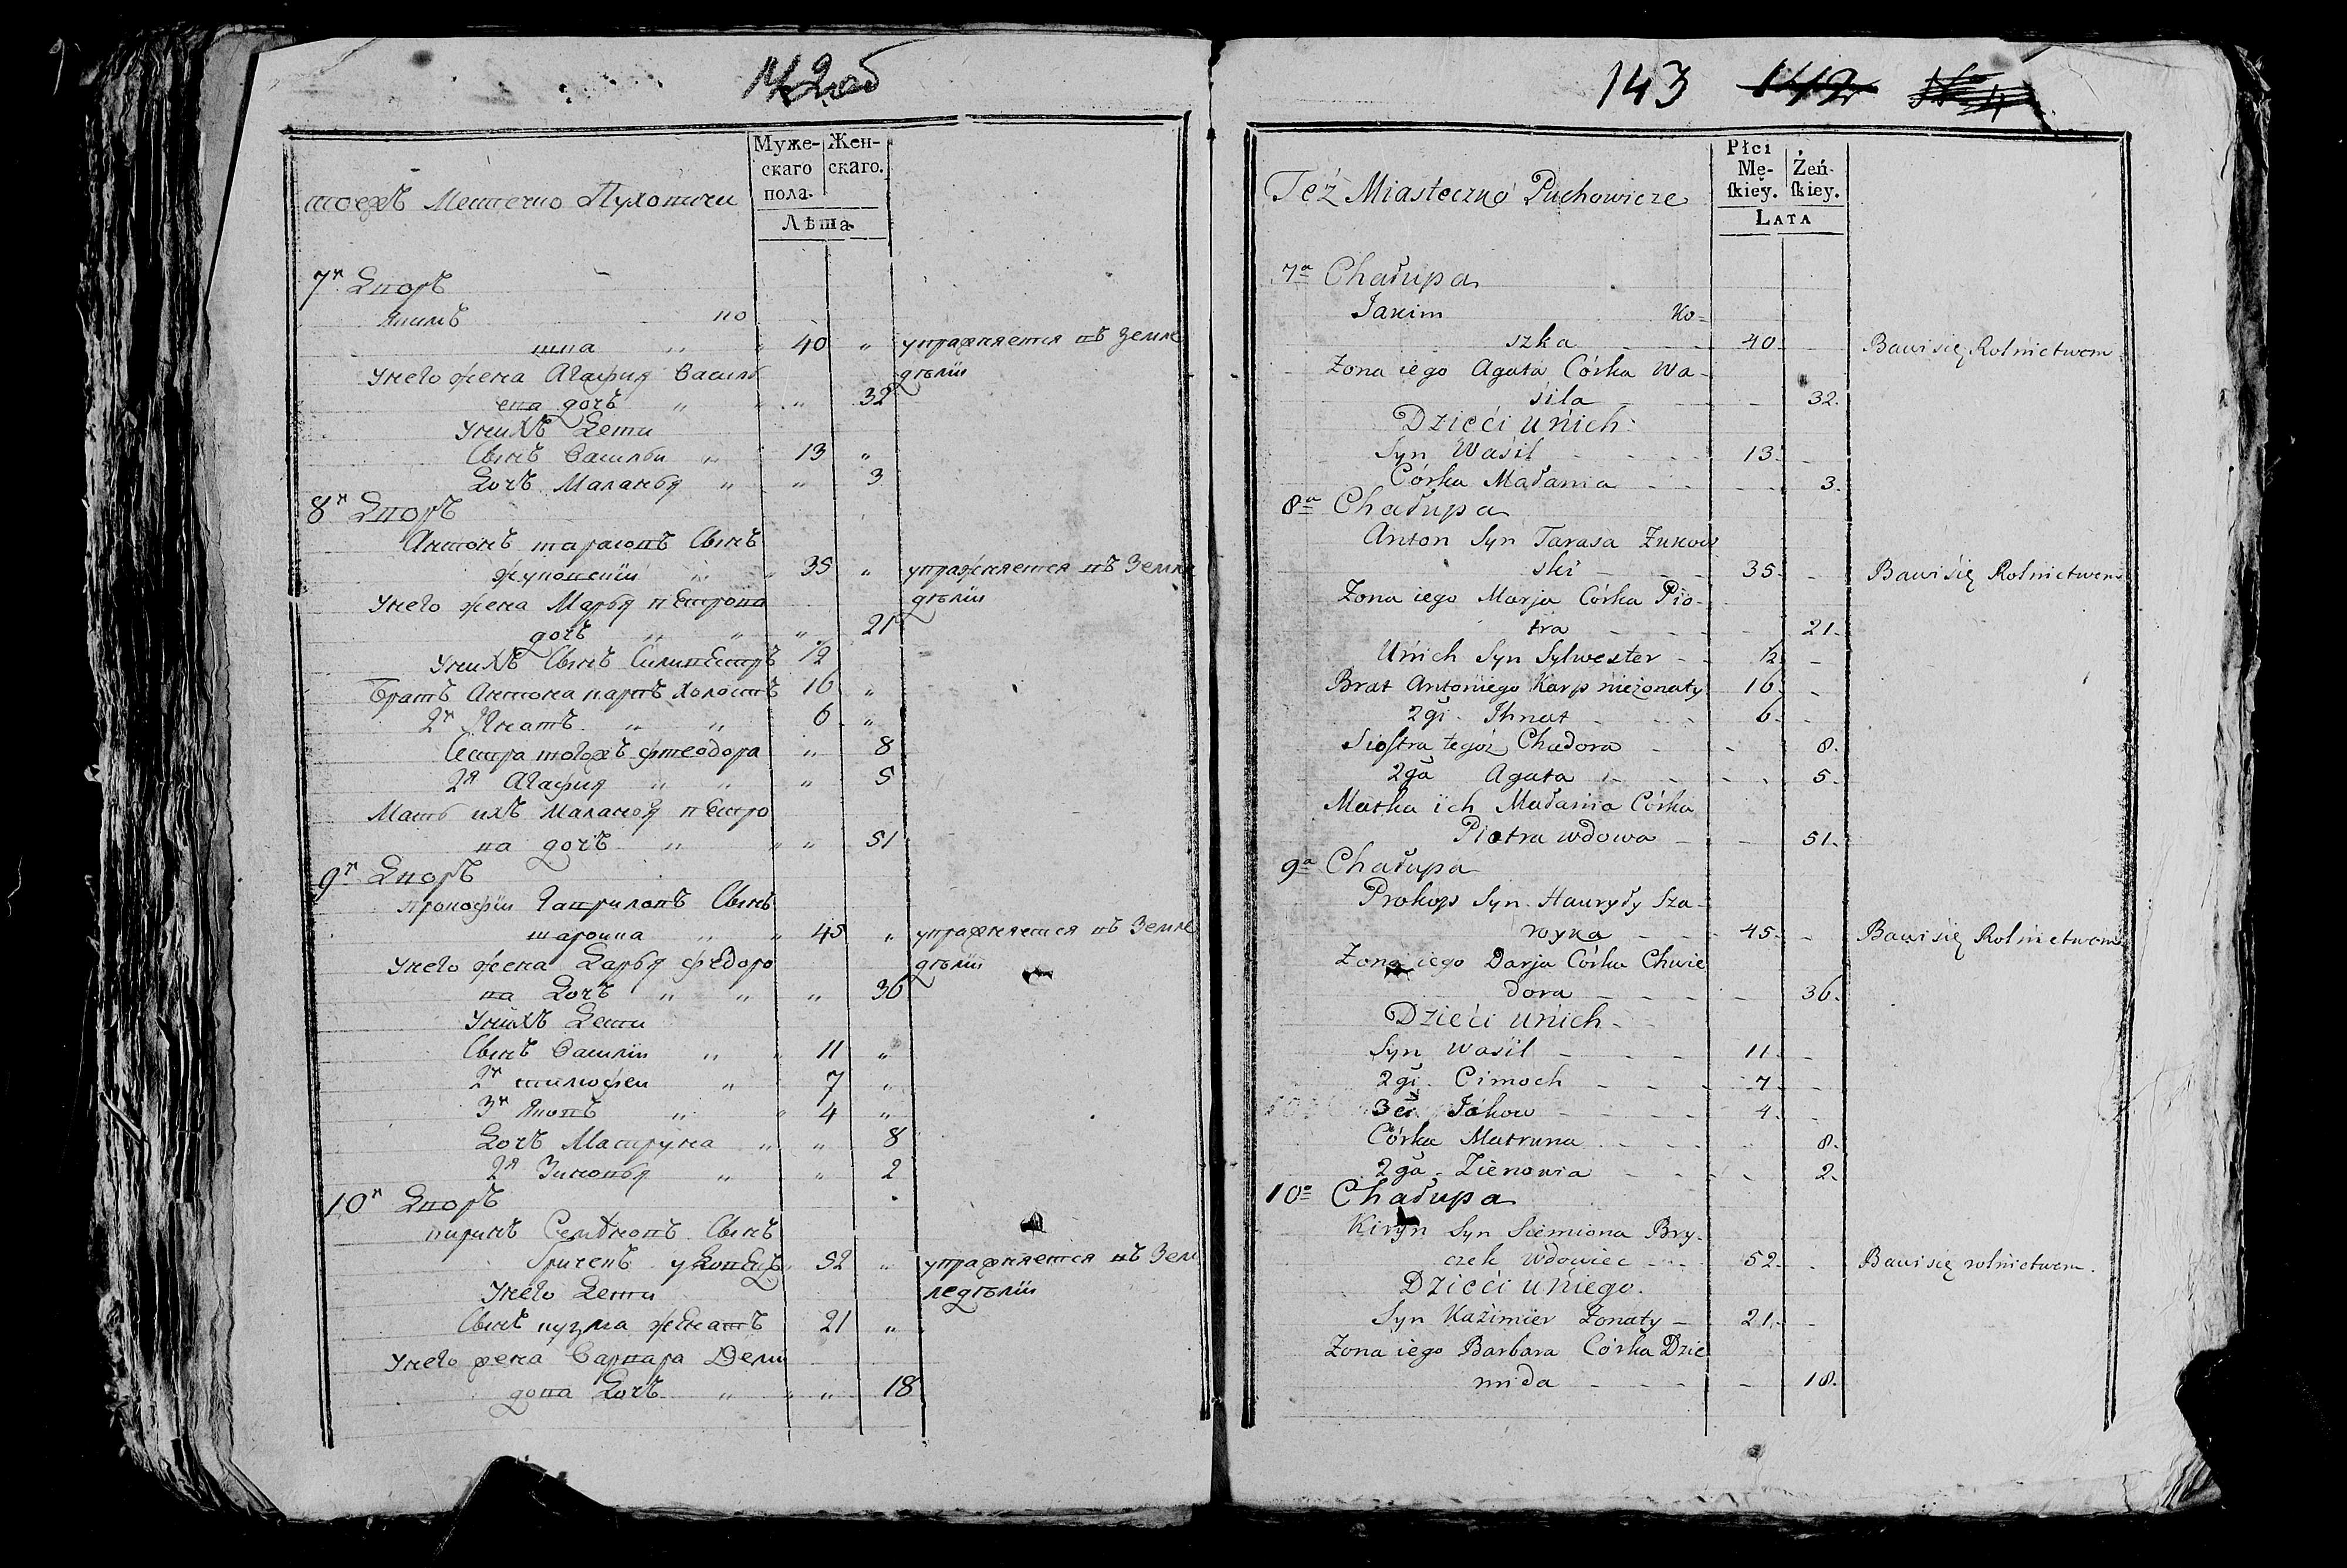 142 об
Муже-
скаго
пола.
Жен-
скаго.
Лѣта.
тоежъ Местечко Пуховичи
7й Дворъ
Якимъ ко
шка „ „ 40 „ упражняется въ земле
Унего жена Агафия Василь дѣлiи
ева дочъ „ „ „ 32
Унихъ Дети
Сынъ Васильи „ 13 „
Дочъ Маланья „ „ 3
8й Дворъ
Антонъ тарасовъ Сынъ
жуковскiи „ „ 35 „ упражняется въ Земле
Унего жена Марья пЕтрова дѣлiи
дочъ „ „ „ 21
Унихъ Сынъ СиливЕстръ 1/2
Братъ Антона карпъ холостъ 16 „
2й Игнатъ „ „ 6 „
Сестра тогожъ фтеодора „ 8
2я Агафия „ „ „ 5
Мать ихъ Маланья пЕтро
ва дочъ „ „ „ 51
9й Дворъ
прокофiи Гавриловъ Сынъ
шаройка „ „ 45 „ упражняется въ Земле
Унего жена Дарья фЕдоро дѣлiи
ва Дочъ „ „ „ 36
Унихъ Дети
Сынъ Василiи „ „ 11 „
2й тимофеи „ 7 „
3й Яковъ „ „ 4 „
Дочъ Матруна „ „ 8
2я Зиновья „ „ 2
10й Дворъ
кирикъ Семiоновъ Сынъ
бричекъ уДовЕцъ „ 52 „ упражняется въ Зем
Унего Дети ледѣлiи
Сынъ кузма жЕнатъ 21 „
Унего жена Варвара Деми
дова Дочъ „ „ „ 18
143 142
Płci
Mę-
skiey.
Żeń-
skiey.
LATA
Też Miasteczko Puchowicze
7a Chałupa
Jakim Ko-
szka 40 Bawi się Rolnictwem
Zona iego Agata Córka Wa-
sila 32.
Dzieci u nich:
Syn Wasil 13.
Córka Małania 3.
8a Chałupa
Anton Syn Tarasa Zukow
ski 35. Bawi się Rolnictwem
Zona iego Marja Córka Pio-
tra 21.
U nich Syn Sylwester 1/2
Brat Antoniego Karp nieżonaty 16
2gi Ihnat 6.
Siostra tegoż Chadora 8.
2ga Agata 5.
Matka ich Małania Córka
Piotra wdowa 51.
9a Chałupa
Prokop Syn Hauryły Sza-
royka 45. Bawi się Rolnictwem
Zona iego Darja Córka Chwie
dora 36.
Dzieci u nich
Syn Wasil 11.
2gi Cimoch 7
3ci Jakow 4.
Córka Matruna 8.
2ga Zienowia 2.
10a Chałupa
Kiryn Syn Siemiona Bry-
czek wdowiec 52. Bawi się rolnictwem.
Dzieci u niego.
Syn Kazimier Zonaty 21.
Zona iego Barbara Córka Dzie
mida 18.